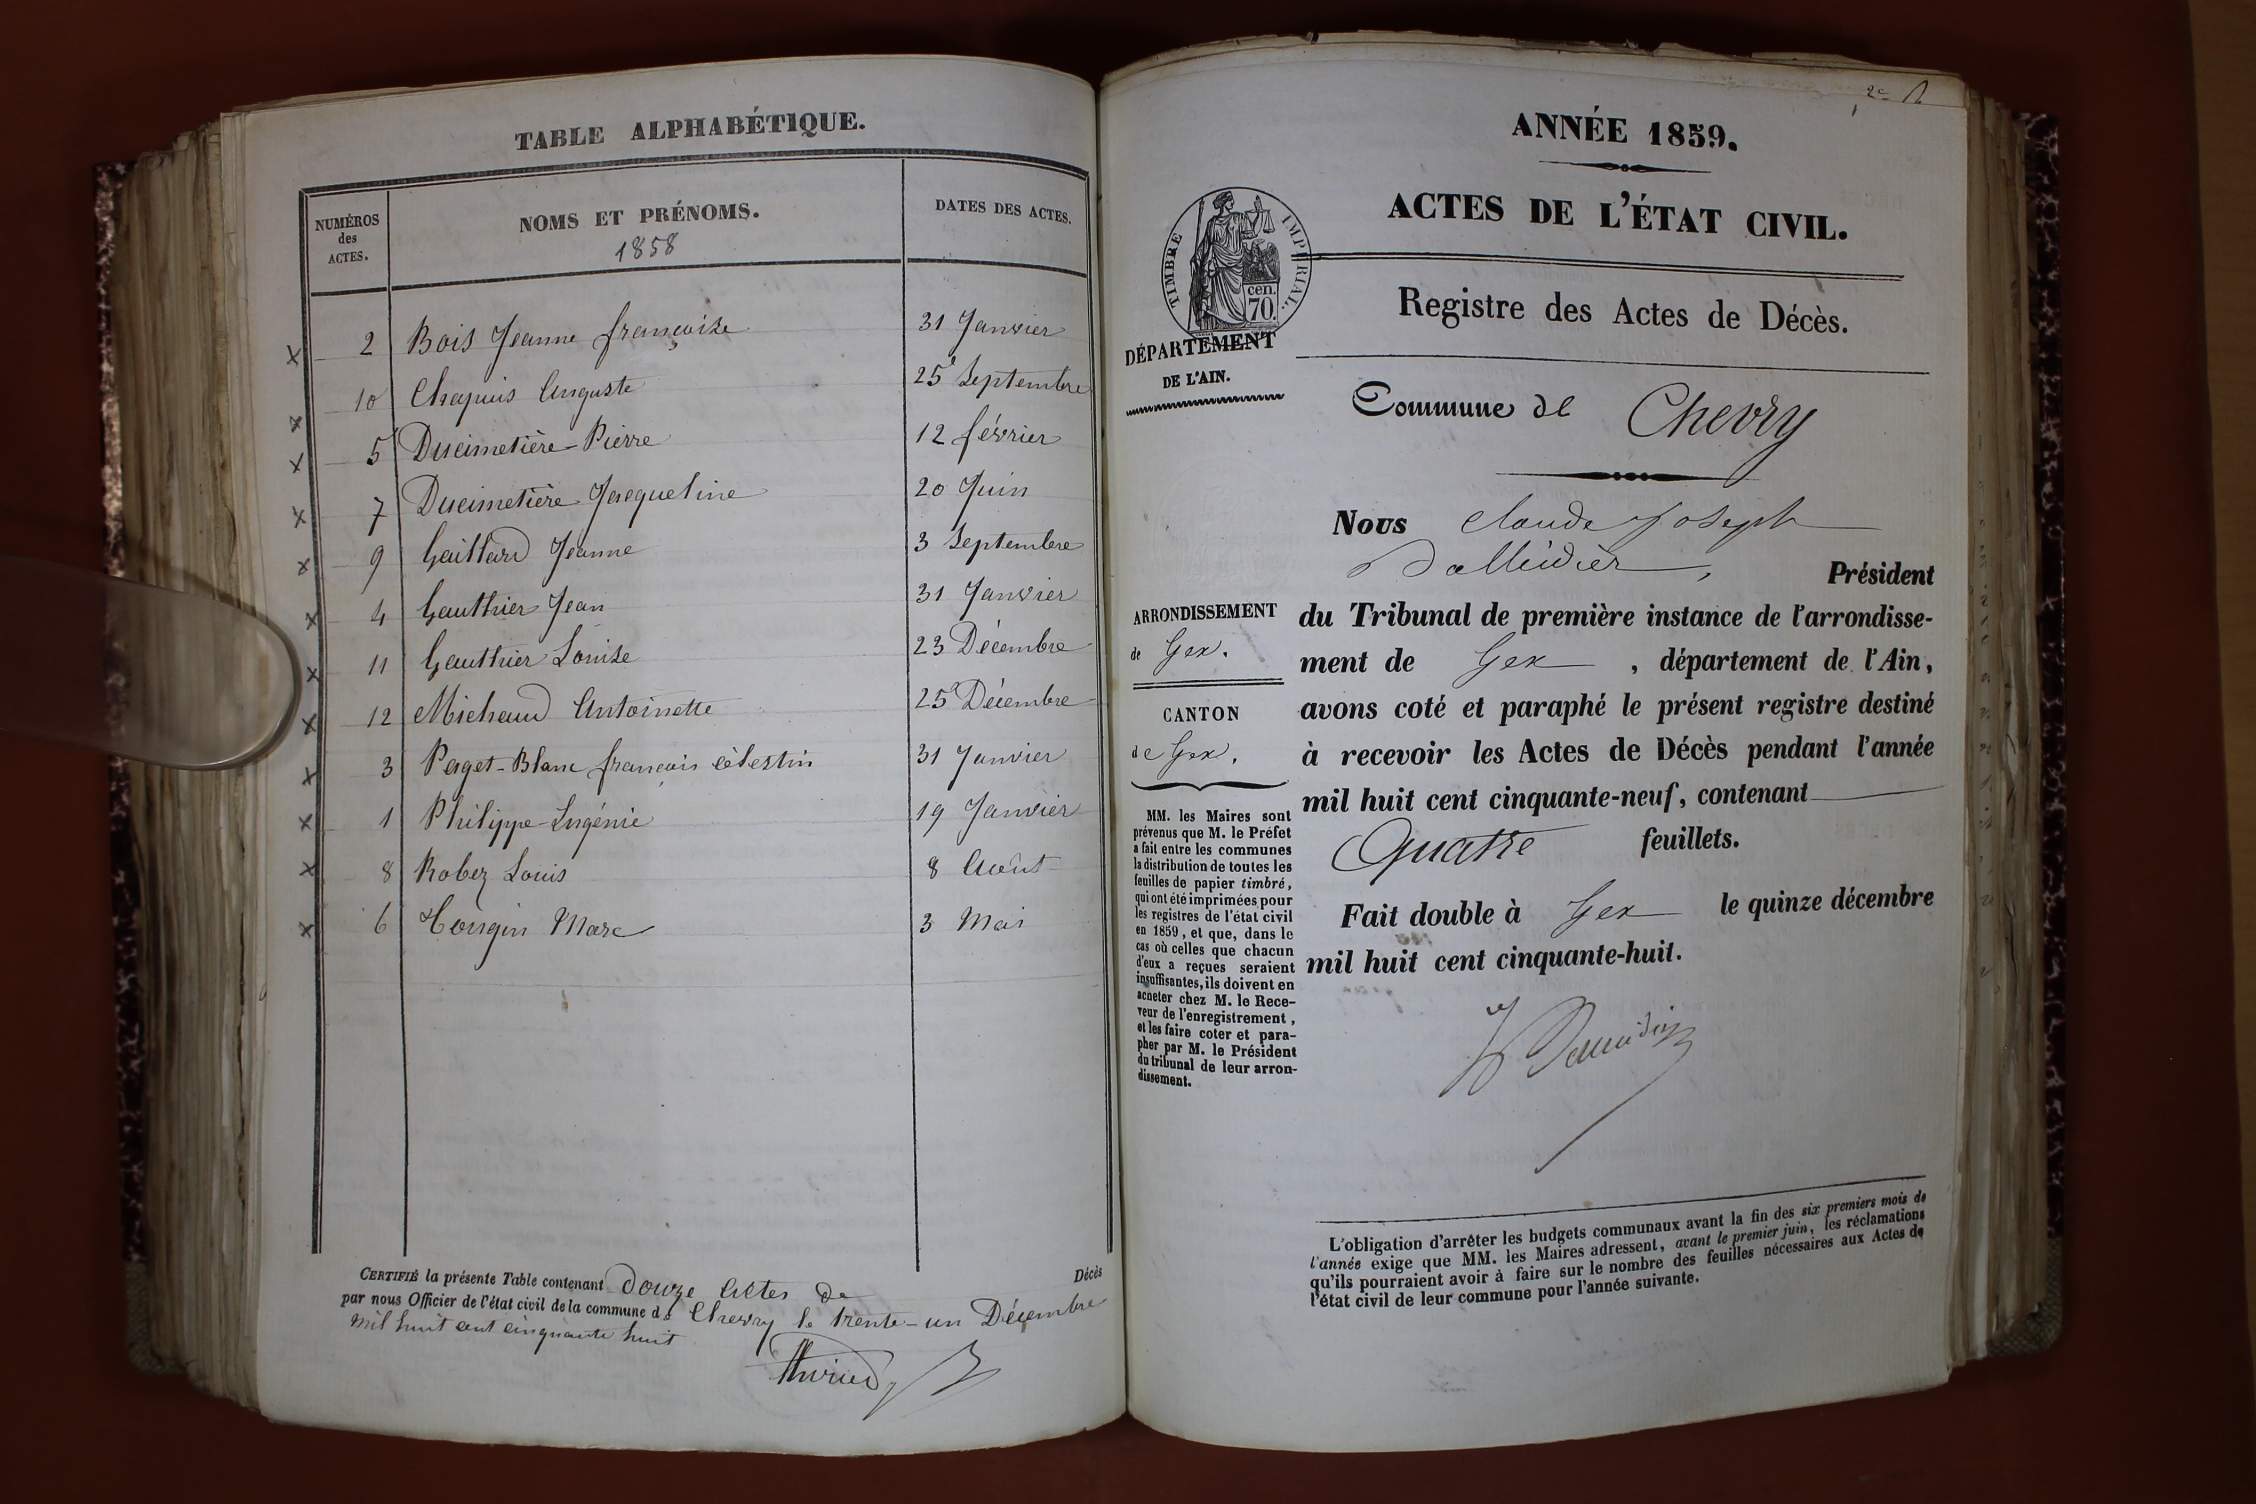 TABLE ALPHABÉTIQUE.
NUMÉROS des ACTES.
NOMS ET PRÉNOMS.
1858
DATES DES ACTES.
2 Bois Jeanne françoise 31 Janvier
10 Chapuis Auguste 25 Septembre
5 Ducimetière-Pierre 12 février
7 Ducimetière Jacqueline 20 Juin
9 Gaillard Jeanne 3 Septembre
4 Gauthier Jean 31 Janvier
11 Gauthier Louise 23 Décembre
12 Michaud Antoinette 25 Décembre
3 Paget-Blanc françois célestin 31 Janvier
1 Philippe-Eugénie 19 Janvier
8 Robez Louis 8 Août
6 Tougin Marc 3 Mai
CERTIFIÉ la présente Table contenant douze Actes de Décès
par nous Officier de l'état civil de la commune de Chevry le trente-un Décembre
mil huit cent cinquante huit
2e
ANNÉE 1859.
ACTES DE L'ÉTAT CIVIL.
TIMBRE IMPÉRIAL.
cen.
70.
Registre des Actes de Décès.
DÉPARTEMENT
DE L'AIN.
Commune de Chevry
Nous Claude Joseph
Président
du Tribunal de première instance de l'arrondisse-
ment de Gex, département de l'Ain,
avons coté et paraphé le présent registre destiné
à recevoir les Actes de Décès pendant l'année
mil huit cent cinquante-neuf, contenant
Quatre feuillets.
Fait double à Gex le quinze décembre
mil huit cent cinquante-huit.
ARRONDISSEMENT
de Gex.
CANTON
de Gex.
MM. les Maires sont
prévenus que M. le Préfet
a fait entre les communes
la distribution de toutes les
feuilles de papier timbré,
qui ont été imprimées pour
les registres de l'état civil
en 1859, et que, dans le
cas où celles que chacun
d'eux a reçues seraient
insuffisantes, ils doivent en
acheter chez M. le Rece-
veur de l'enregistrement,
et les faire coter et para-
pher par M. le Président
du tribunal de leur arron-
dissement.
L'obligation d'arrêter les budgets communaux avant la fin des six premiers mois de
l'année exige que MM. les Maires adressent, avant le premier juin, les réclamations
qu'ils pourraient avoir à faire sur le nombre des feuilles nécessaires aux Actes de
l'état civil de leur commune pour l'année suivante.